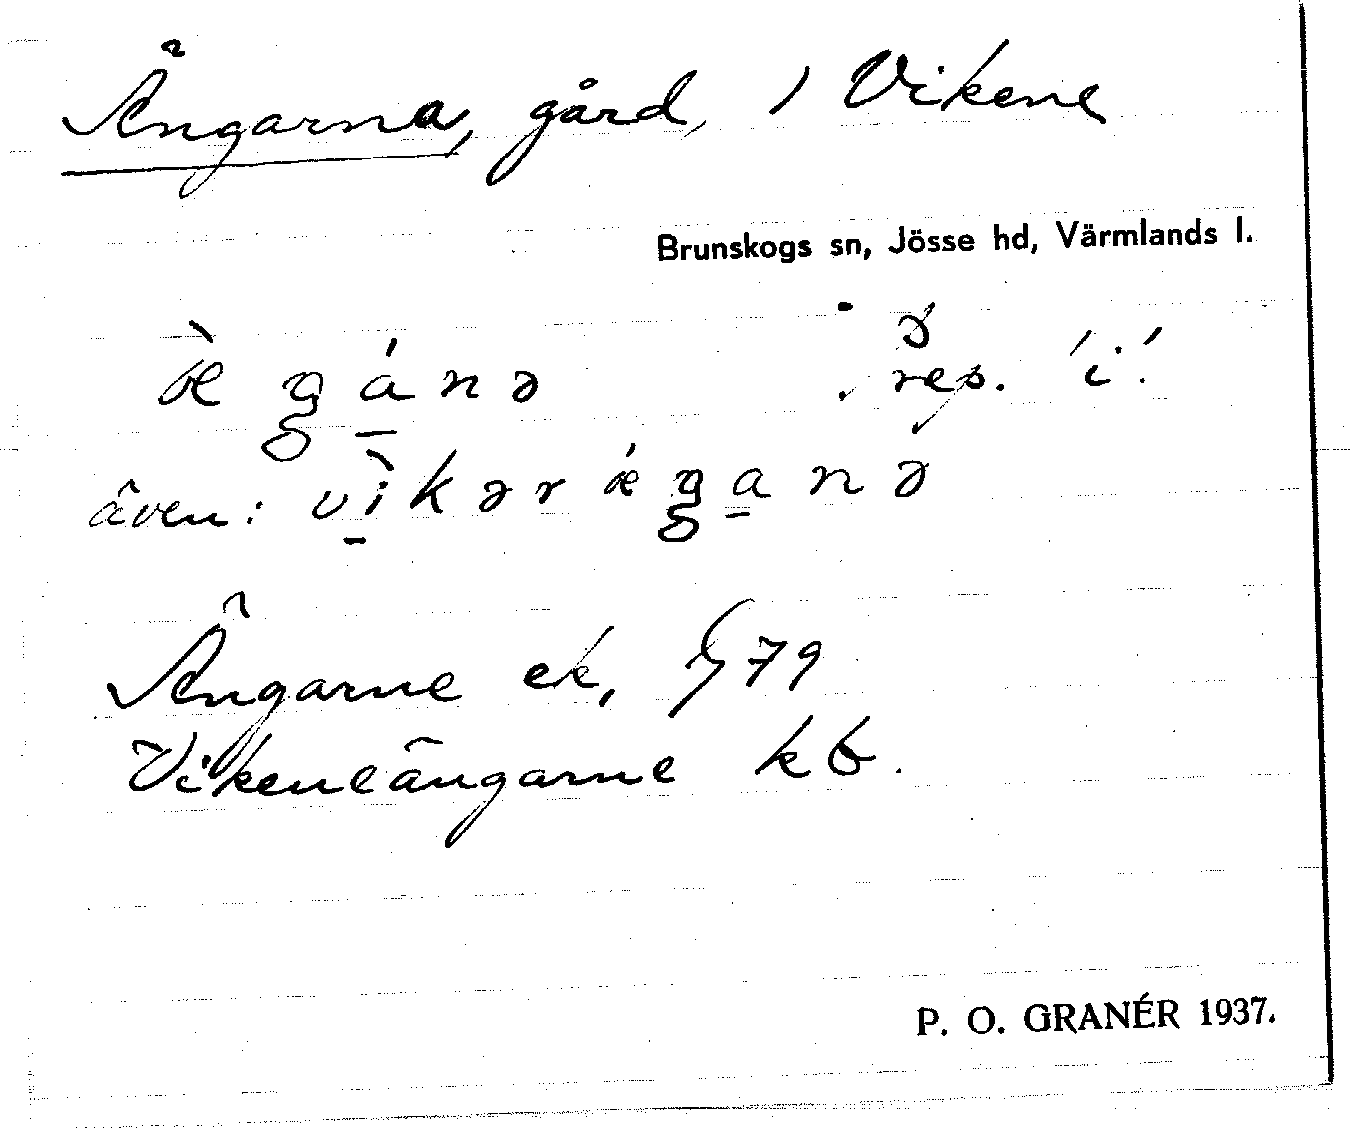 Ängarna, gård, / Vikene
Brunskogs sn, Jösse hd, Värmlands l.
rep. 'i'
även: vìkər
Ängarne ek, G 79
Vikeneängarne kb.
P. O. GRANÉR 1937.